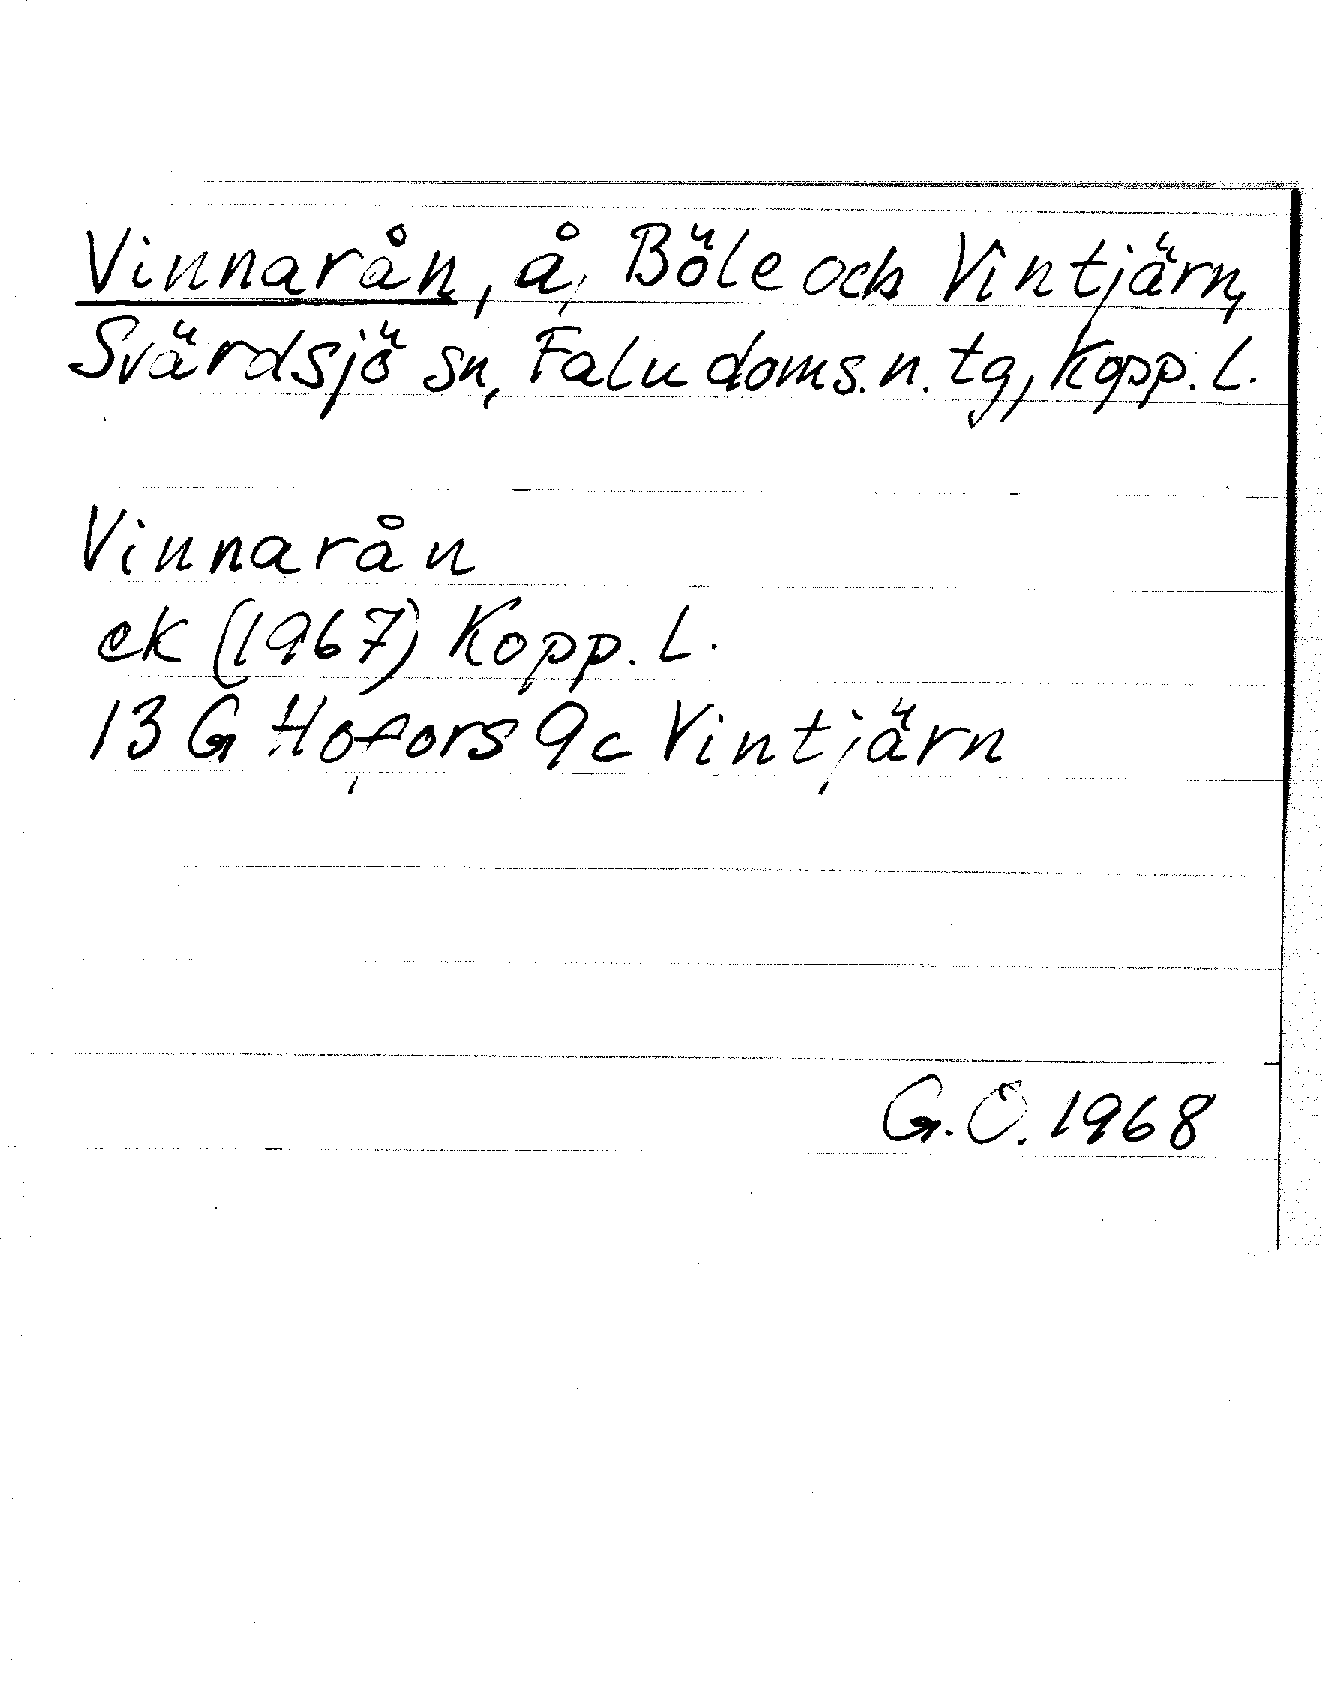 Vinnarån, å, Böle och Vintjärn,
Svärdsjö sn, Falu doms.n. tg, Kopp. L.
Vinnarån
ek (1967) Kopp. L.
13 G Hofors 9c Vintjärn
G.O. 1968